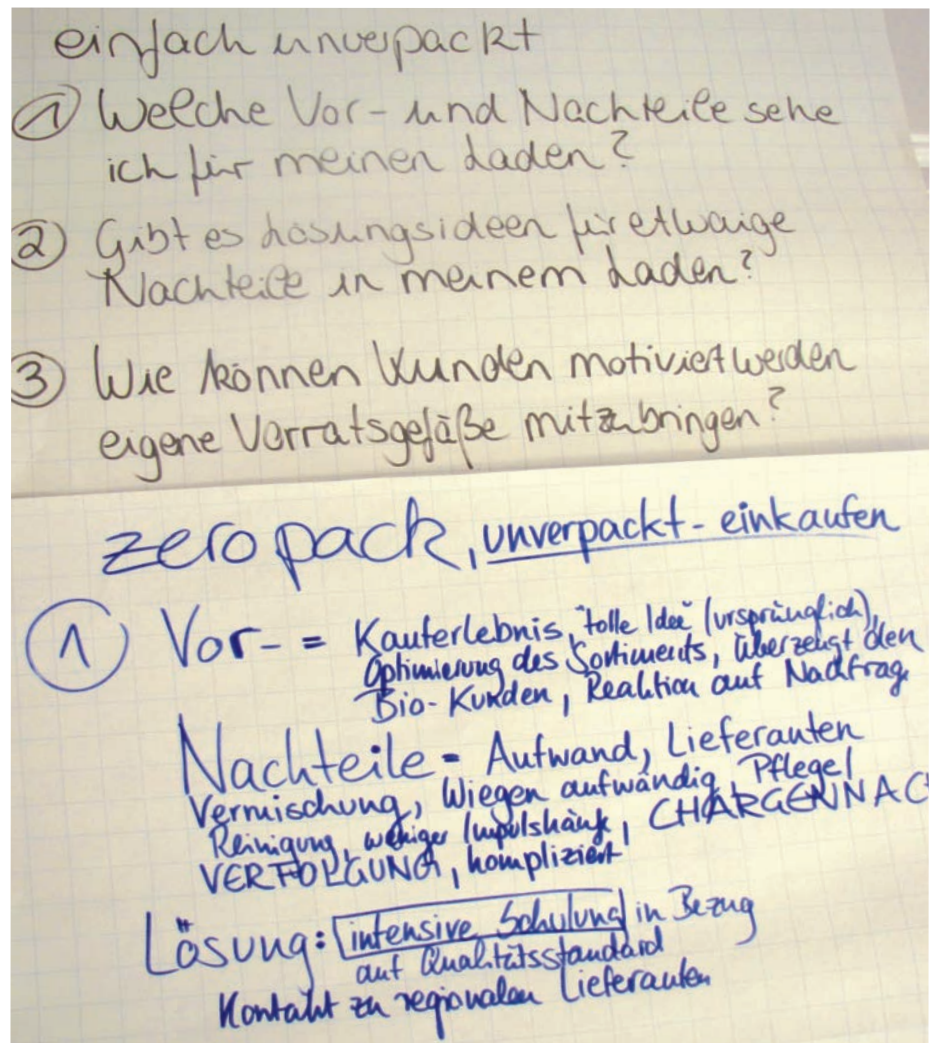 einfach unverpackt
① Welche Vor- und Nachteile sehe
ich für meinen Laden?
② Gibt es Lösungsideen für etwaige
Nachteile in meinem Laden?
③ Wie können Kunden motiviert werden
eigene Vorratsgefäße mitzubringen?
zero pack, unverpackt-einkaufen
① Vor- = Kauferlebnis, "tolle Idee" (ursprünglich),
Optimierung des Sortiments, überzeugt den
Bio-Kunden, Reaktion auf Nachfrage
Nachteile = Aufwand, Lieferanten
Vermischung, Wiegen aufwändig, Pflege/
Reinigung, weniger Impulskäufe, CHARGENNAC
VERFOLGUNG, kompliziert
Lösung: intensive Schulung in Bezug
auf Qualitätsstandard
Kontakt zu regionalen Lieferanten